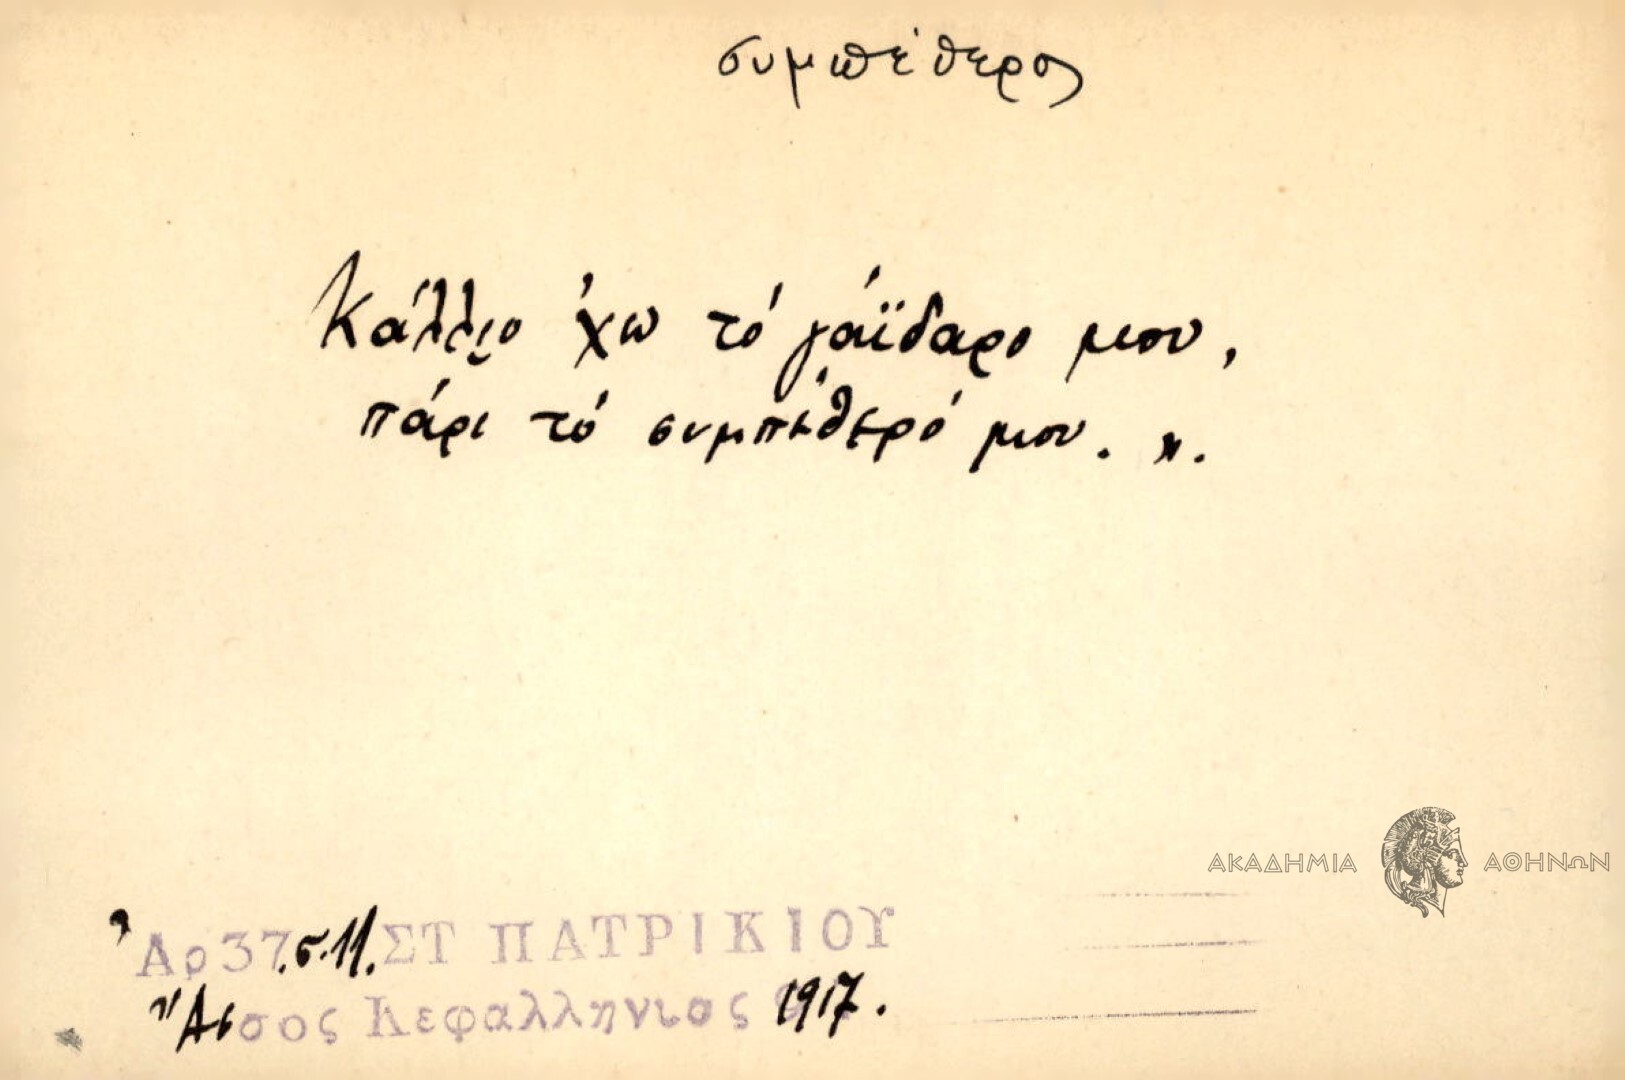 συμπέθερος
Κάλλιο 'χω τό γάϊδαρο μου,
πάρι τό συμπέθερό μου. ».
ΑΚΑΔΗΜΙΑ ΑΘΗΝΩΝ
Ἀρ 37.σ.11. ΣΤ ΠΑΤΡΙΚΙΟΥ
Ἄσσος Κεφαλληνίας 1917.